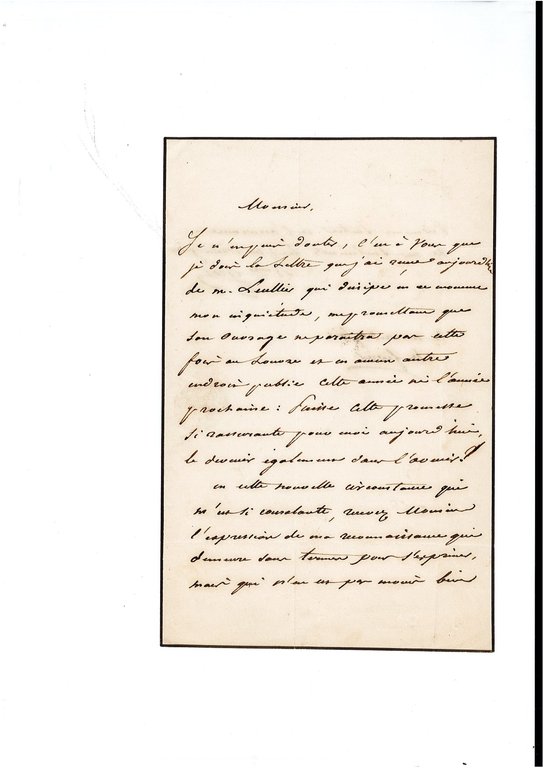 Monsieur,
Je n'en puis douter, c'est à Vous que
je dois la Lettre que j'ai reçue aujourd'hui
de m. Leullier qui dissipe en ce moment
mon inquiétude, me promettant que
son Ouvrage ne paraitra pas cette
fois au Louvre et en aucun autre
endroit public cette année ni l'année
prochaine : Puisse cette promesse
si rassurante pour moi aujourd'hui,
le devenir également dans l'avenir !
en cette nouvelle circonstance qui
m'est si consolante, recevez Monsieur
l'expression de ma reconnaissance qui
demeure sans termes pour s'exprimer,
mais qui n'en est pas moins bien